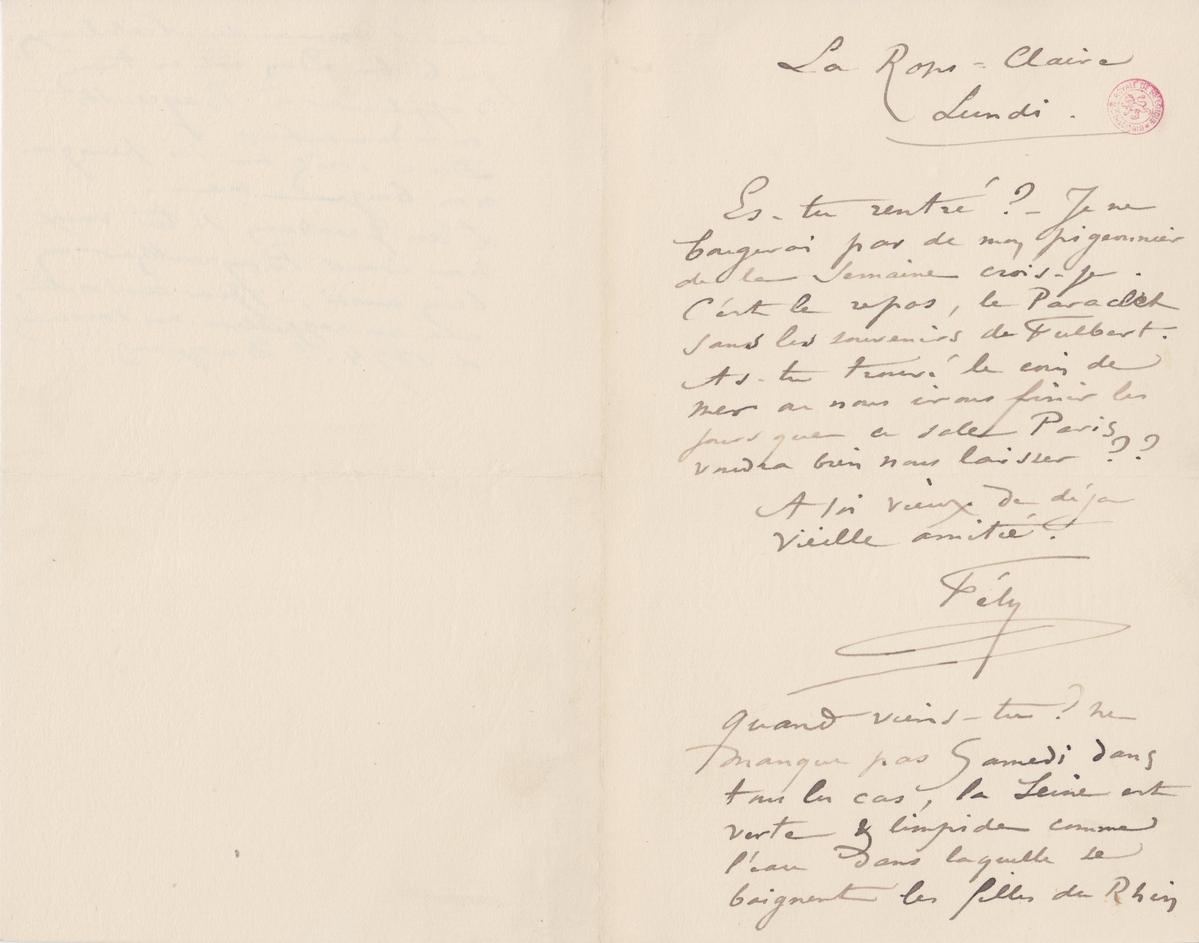 La Rops-Claire
Lundi.
Es-tu rentré ? – Je ne
bougerai pas de mon pigeonnier
de la Semaine crois-je.
C'est le repos, le Paraclet
sans les souvenirs de Fulbert.
As-tu trouvé le coin de
mer ou nous irons finir les
jours que ce sale Paris
voudra bien nous laisser ??
A toi vieux de déja
vieille amitié.
Fély
Quand viens-tu ? ne
manque pas Samedi dans
tous les cas, la Seine est
verte & limpide comme
l'eau dans laquelle se
baignent les filles du Rhin